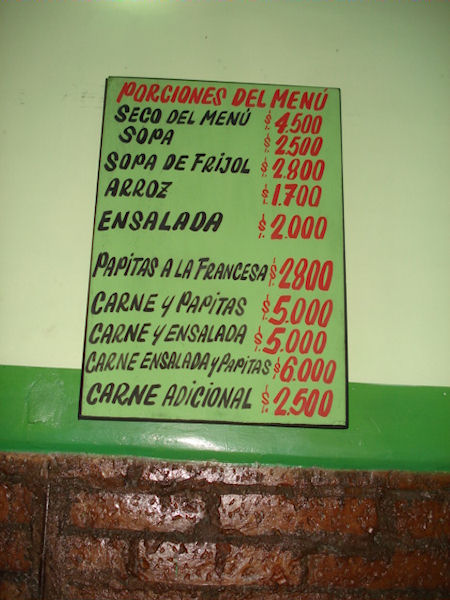 PORCIONES DEL MENÚ
SECO DEL MENÚ $ 4.500
SOPA $ 2.500
SOPA DE FRIJOL $ 2.800
ARROZ $ 1.700
ENSALADA $ 2.000
PAPITAS A LA FRANCESA $ 2800
CARNE Y PAPITAS $ 5.000
CARNE Y ENSALADA $ 5.000
CARNE ENSALADA Y PAPITAS $ 6.000
CARNE ADICIONAL $ 2.500